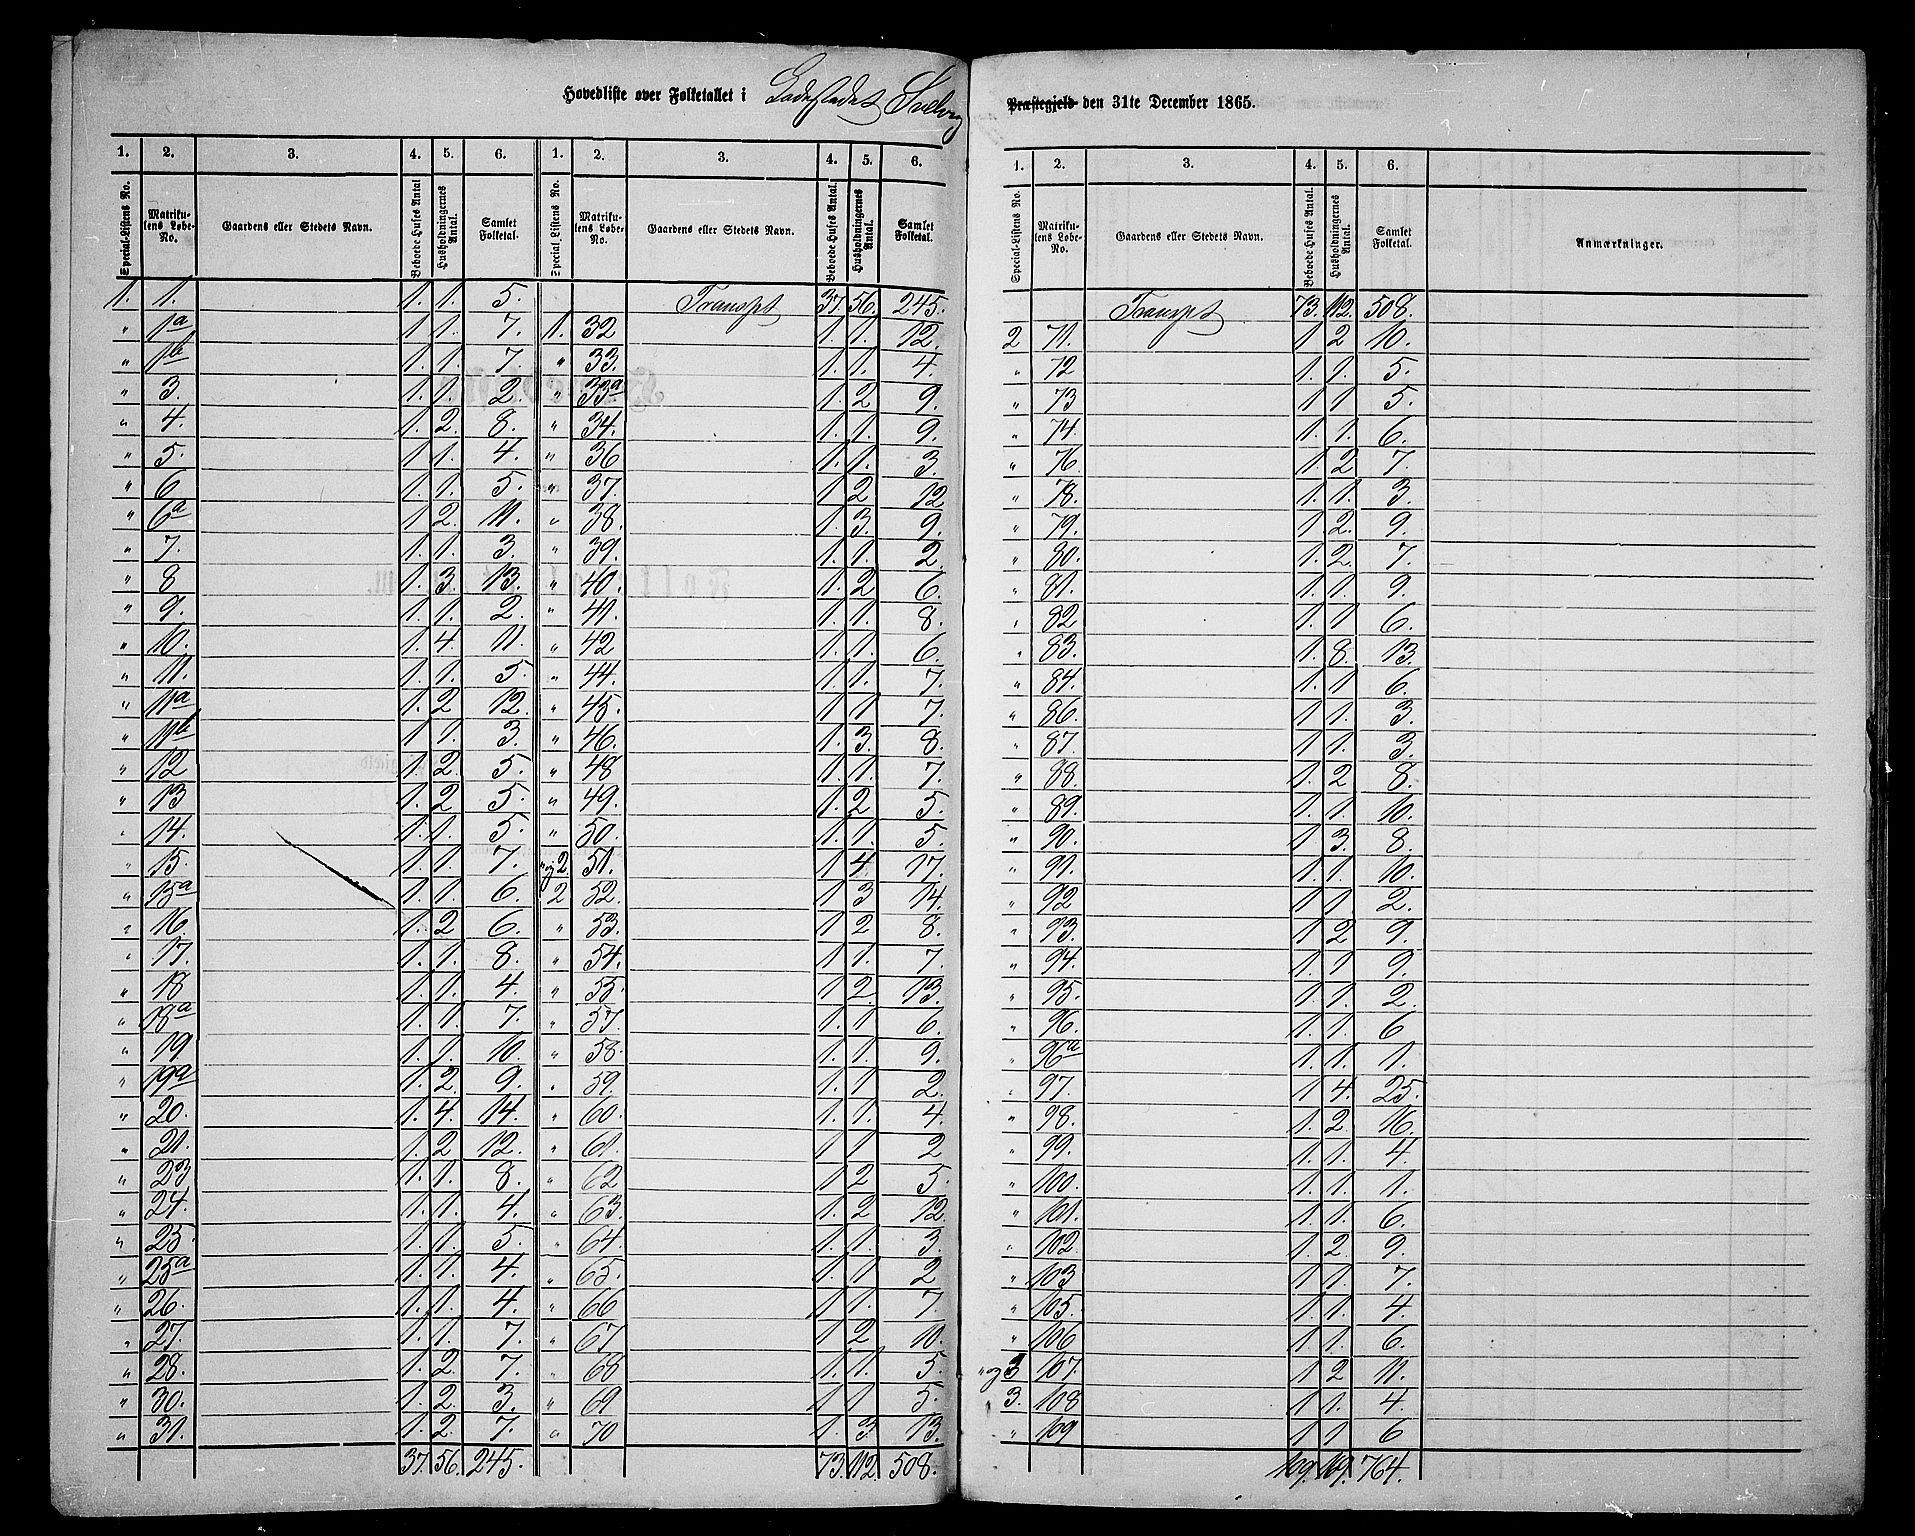 Hovedliste over Folketallet i Ladestedet Svelvig
Præstegjeld den 31te December 1865.
1. 2. 3. 4. 5. 6. 1. 2. 3. 4. 5. 6.
Special-Listens No. Matrikulens Løbe-No. Gaardens eller Stedets Navn. Beboede Huses Antal Husholdningernes Antal. Samlet Folketal. Special-Listens No. Matrikulens Løbe-No. Gaardens eller Stedets Navn. Beboede Huses Antal. Husholdningernes Antal. Samlet Folketal.
1. 1. 1. 1. 5. Transpt 37. 56. 245.
" 1a 1. 1. 7. 1. 32 1. 1. 12.
" 1b 1. 1. 7. " 33. 1. 1. 4.
" 3. 1. 1. 2. " 33a 1. 2 9.
" 4. 1. 2. 8. " 34. 1. 1. 9.
" 5. 1. 1. 4. " 36 1. 1. 3.
" 6 1. 1. 5. " 37. 1 2 12
" 6a 1. 2. 11. " 38. 1. 3. 9.
" 7. 1. 1. 3. " 39. 1. 1. 2.
" 8 1. 3. 13. " 40. 1. 2 6.
" 9. 1. 1. 2. " 41. 1. 1. 8.
" 10. 1. 4. 11. " 42 1. 1. 6.
" 11. 1. 1. 5. " 44. 1. 1. 7.
" 11a 1. 2 12. " 45. 1. 1 7.
" 11b 1. 1. 3. " 46. 1. 3. 8.
" 12 1. 2. 5. " 48 1. 1. 7.
" 13 1. 2 5. " 49. 1. 2 5.
" 14. 1. 1. 5. " 50. 1. 1. 5.
" 15. 1. 1. 7. " og 2. 51. 1 4 17.
" 15a 1. 1. 6. 2 52. 1 3 14.
" 16. 1. 2 6. " 53. 1 2 8.
" 17. 1. 1. 8. " 54. 1. 1. 7.
" 18 1. 1. 4. " 55. 1 2. 13.
" 18a 1. 1. 7. " 57. 1. 1 6.
" 19 1. 1. 10. " 58. 1. 1. 9.
" 19a 1. 2. 9. " 59. 1. 1 2.
" 20. 1. 4. 14. " 60. 1. 1. 4.
" 21. 1. 2 12. " 61. 1 1 2
" 23 1. 1. 8. " 62 1 2 5.
" 24. 1. 1. 4. " 63. 1. 2 12.
" 25. 1. 1. 5. " 64. 1. 1. 3.
" 25a 1. 1. 4. " 65. 1. 1 2
" 26. 1. 1. 4. " 66 1 1. 7.
" 27. 1. 1. 7. " 67 1. 2 10.
" 28. 1. 2. 7. " 68 1. 1. 5.
" 30. 1. 2. 3. " 69 1. 1 5.
" 31. 1. 2. 7. " 70 1. 3 13.
37. 56. 245. 73. 112 508.
1. 2. 3. 4. 5. 6.
Special-Listens No. Matrikulens Løbe-No. Gaardens eller Stedets Navn. Beboede Huses Antal. Husholdningernes Antal. Samlet Folketal. Anmærkninger.
Transpt 73. 112. 508.
2 71. 1. 2 10.
" 72 1. 1. 5.
" 73 1. 1 5.
" 74. 1. 1. 6.
" 76. 1. 2 7.
" 78. 1. 1. 3.
" 79. 1. 2. 9.
" 80. 1. 2 7.
" 81. 1. 1. 9.
" 82 1. 1 6.
" 83. 1. 8. 13.
" 84. 1. 1 6.
" 86. 1. 1. 3.
" 87. 1 1. 3.
" 88. 1. 2 8.
" 89. 1. 1. 10.
" 90. 1 3. 8.
" 91. 1. 1. 10.
" 92 1 1 2.
" 93. 1. 2 9.
" 94. 1. 1 9.
" 95. 1 1. 2.
" 96. 1. 1. 6
" 96a 1. 1. 1.
" 97. 1 4. 25.
" 98. 1. 2. 16.
" 99. 1. 1. 4.
" 100. 1. 1. 1.
" 101. 1. 1. 6.
" 102. 1. 2. 9.
" 103 1. 1. 7.
" 105. 1. 1. 4.
" 106 1 1. 6.
" og 3 107. 1 2 11.
3. 108 1 1. 4.
" 109 1 1 6
109. 169. 764.